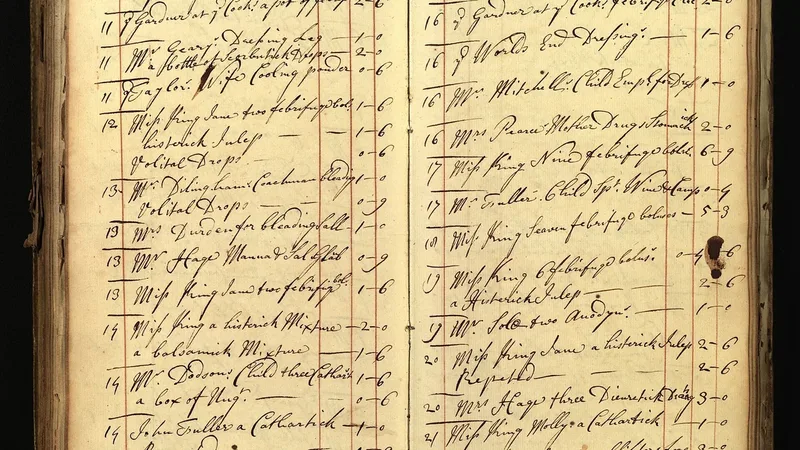 11 ye Gardner at ye Cock, a pot of 2-6
11 Mr Geary: Dressing Leg 1-0
11 a bottle of Scorbutick Drops 2-0
11 Taylor: Wife Cooling powder 0-6
12 Miss King Jane two febrifuge bol: 1-6
histerick Julep 1-6
Volital Drops 0-6
13 Mr: Dilingham: Coachman bleeding 1-0
Volital Drops 0-9
13 Mrs Durden for bleeding Sall 1-0
13 Mr Hage Manna & Sal Glab 0-9
13 Miss King Jane two febrifug bol: 1-6
14 Miss King a histerick Mixture 2-0
a balsamick Mixture 1-6
14 Mr. Dodson: Child three Cathart 1-6
a box of Ungt. 0-6
14 John Fuller a Cathartick 1-0
16 ye Gardner at ye Cock; febrifuge
16 ye Worlds End Dressing: 1-6
16 Mr. Mitchell: Child Emp: for 1-0
16 Mrs Pearce Mother Drugs Stomach 2-0
17 Miss King Nine febrifuge bolus: 6-9
17 Mr Fuller: Child Spt. Wine & Camp 0-9
18 Miss King Seaven febrifuge boluses 5-3
19 Miss King 6 febrifuge bolus: -6
a Histerick Julep 2-6
19 Mr: Sole two Anodyn: 1-0
20 Miss King Jane a histerick Julep 2-6
Repeted 2-6
20 Mrs Hage three Dieuretick 3-0
21 Miss King Molly a Cathartick 1-0